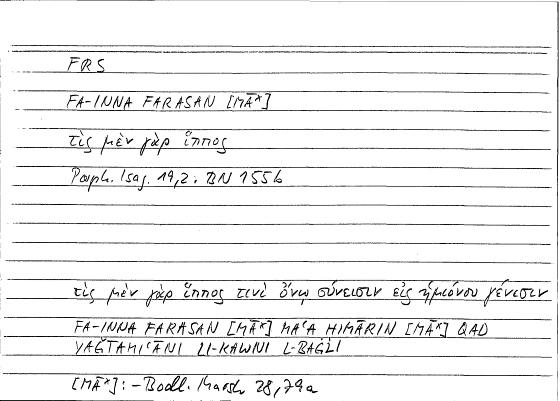 FRS
FA-INNA FARASAN [MĀ*]
τὶς μὲν γὰρ ἵππος
Porph. Isag. 19,2: BN 155b
τὶς μὲν γὰρ ἵππος τινὶ ὄνῳ σύνεισιν εἰς ἡμιόνου γένεσιν
FA-INNA FARASAN [MĀ*] MAʿA ḤIMĀRIN [MĀ*] QAD
YAǦTAMIʿĀNI LI-KAWNI L-BAĠLI
[MĀ*]: – Bodl. Marsh 28,79a